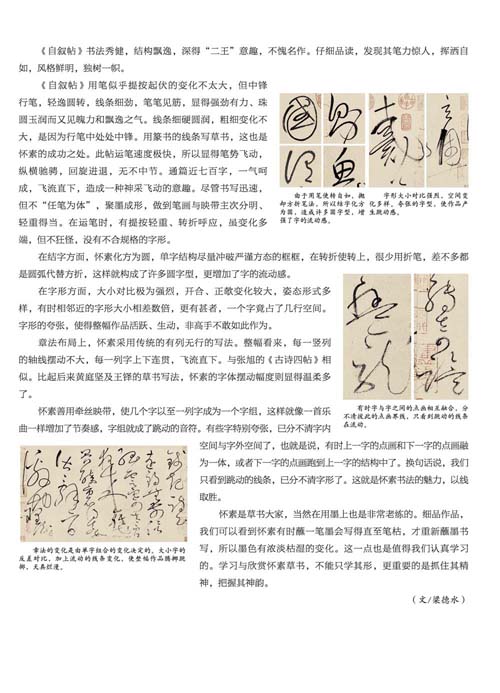 《自叙帖》书法秀健，结构飘逸，深得“二王”意趣，不愧名作。仔细品读，发现其笔力惊人，挥洒自
如，风格鲜明，独树一帜。
《自叙帖》用笔似乎提按起伏的变化不太大，但中锋
行笔，轻逸圆转，线条细劲，笔笔见筋，显得强劲有力、珠
圆玉润而又见魄力和飘逸之气。线条细硬圆润，粗细变化不
大，是因为行笔中处处中锋。用篆书的线条写草书，这也是
怀素的成功之处。此帖运笔速度极快，所以显得笔势飞动，
纵横驰骋，回旋进退，无不中节。通篇近七百字，一气呵
成，飞流直下，造成一种神采飞动的意趣。尽管书写迅速，
但不“任笔为体”，聚墨成形，做到笔画与映带主次分明、
轻重得当。在运笔时，有提按轻重、转折呼应，虽变化多
端，但不狂怪，没有不合规格的字形。
由于用笔使转自如，抛
却方折笔法，所以结字化方
为圆，造成许多圆字型，增
强了字的流动感。
字形大小对比强烈，空间变
化多样，夸张的字型，使作品产
生跳动感。
在结字方面，怀素化方为圆，单字结构尽量冲破严谨方态的框框，在转折使转上，很少用折笔，差不多都
是圆弧代替方折，这样就构成了许多圆字型，更增加了字的流动感。
在字形方面，大小对比极为强烈，开合、正欹变化较大，姿态形式多
样，有时相邻近的字形大小相差数倍，更有甚者，一个字竟占了几行空间。
字形的夸张，使得整幅作品活跃、生动，非高手不敢如此作为。
章法布局上，怀素采用传统的有列无行的写法。整幅看来，每一竖列
的轴线摆动不大，每一列字上下连贯，飞流直下。与张旭的《古诗四帖》相
似。比起后来黄庭坚及王铎的草书写法，怀素的字体摆动幅度则显得温柔多
了。
有时字与字之间的点画相互融合，分
不清彼此的点画界线，只看到跳动的线条
在流动。
怀素善用牵丝映带，使几个字以至一列字成为一个字组，这样就像一首乐
曲一样增加了节奏感，字组就成了跳动的音符。有些字特别夸张，已分不清字内
空间与字外空间了，也就是说，有时上一字的点画和下一字的点画融
为一体，或者下一字的点画跑到上一字的结构中了。换句话说，我们
只看到跳动的线条，已分不清字形了。这就是怀素书法的魅力，以线
取胜。
章法的变化是由单字组合的变化决定的，大小字的
反差对比，加上流动的线条变化，使整幅作品腾挪跳
掷，天真烂漫。
怀素是草书大家，当然在用墨上也是非常老练的。细品作品，
我们可以看到怀素有时蘸一笔墨会写得直至笔枯，才重新蘸墨书
写，所以墨色有浓淡枯湿的变化。这一点也是值得我们认真学习
的。学习与欣赏怀素草书，不能只学其形，更重要的是抓住其精
神，把握其神韵。
（文/梁德水）